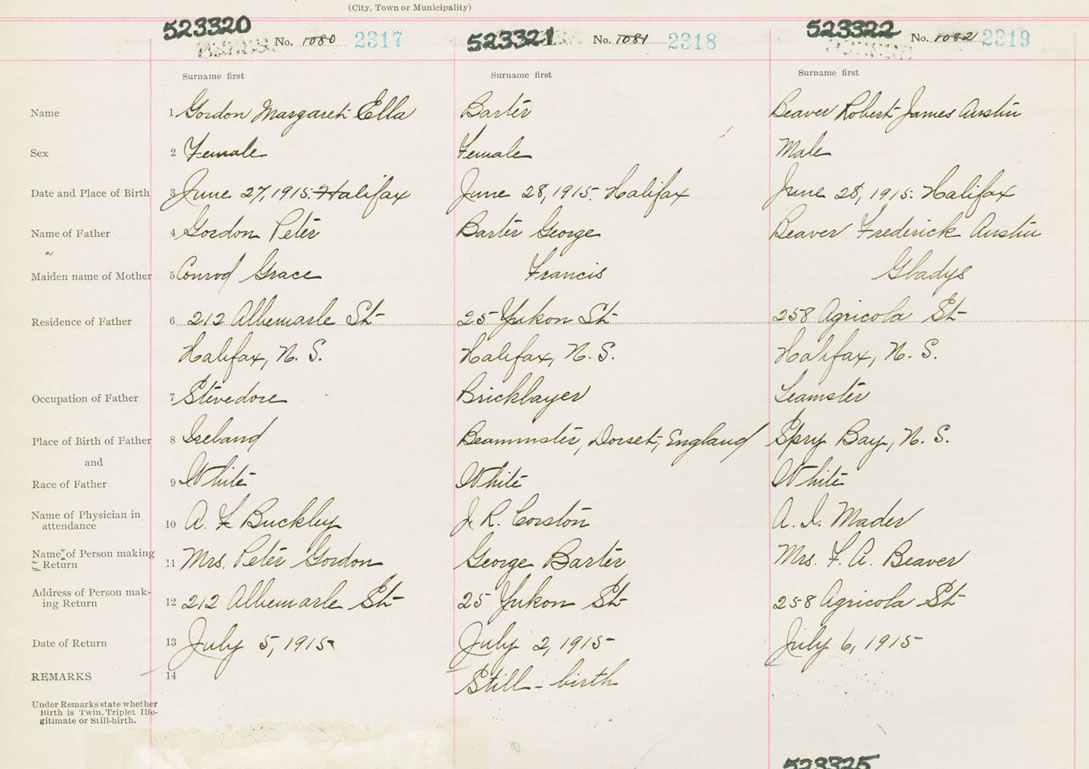 (City, Town or Municipality)
523320 No. 1080 2317 523321 No. 1081 2318 523322 No. 1082 2319
Surname first Surname first Surname first
Name 1 Gordon Margaret Ella Barter Beaver Robert James Austin
Sex 2 Female Female Male
Date and Place of Birth 3 June 27, 1915. Halifax June 28, 1915. Halifax June 28, 1915. Halifax
Name of Father 4 Gordon Peter Barter George Beaver Frederick Austin
Maiden name of Mother 5 Conrod Grace Francis Gladys
Residence of Father 6 212 Albemarle St 25 Yukon St 258 Agricola St
Halifax, N. S. Halifax, N. S. Halifax, N. S.
Occupation of Father 7 Stevedore Bricklayer Teamster
Place of Birth of Father 8 Ireland Beaminster, Dorset, England Spry Bay, N. S.
and
Race of Father 9 White White White
Name of Physician in
attendance 10 A. F. Buckley J. R. Corston A. I. Mader
Name of Person making
Return 11 Mrs. Peter Gordon George Barter Mrs. F. A. Beaver
Address of Person mak-
ing Return 12 212 Albemarle St 25 Yukon St 258 Agricola St
Date of Return 13 July 5, 1915 July 2, 1915 July 6, 1915
REMARKS 14 Still-birth
Under Remarks state whether
Birth is Twin, Triplet, Ille-
gitimate or Still-birth.
523325